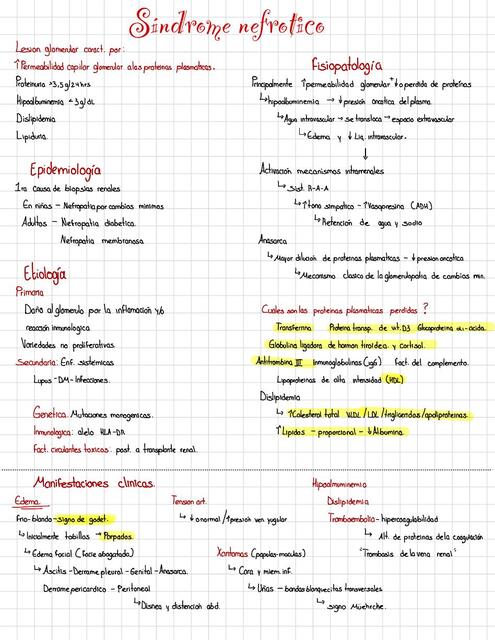 Síndrome nefrotico
Lesion glomerular caract. por:
↑Permeabilidad capilar glomerular a las proteinas plasmaticas.
Proteinuria >3,5g/24hrs
Hipoalbuminemia <3g/dL
Dislipidemia
Lipiduria.
Epidemiología
1ra causa de biopsias renales
En niños - Nefropatia por cambios minimos
Adultos - Nefropatia diabetica.
Nefropatia membranosa
Etiología
Primaria
Daño al glomerulo por la inflamación y/o
reacción inmunologica
Variedades no proliferativas.
Secundaria: Enf. sistémicas
Lupus -DM- Infecciones.
Genética: Mutaciones monogenicas.
Inmunologica: alelo HLA-DR
Fact. circulantes toxicos: post. a transplante renal.
Fisiopatología
Principalmente ↑permeabilidad glomerular + ↓o perdida de proteínas
↳hipoalbuminemia → ↓presión oncotica del plasma.
↳Agua intravascular → se transloca → espacio extravascular
↳Edema y ↓Liq. intravascular.
↓
Activación mecanismos intrarrenales
↳Sist. R-A-A
↳↑tono simpatico - ↑Vasopresina (ADH)
↳Retención de agua y sodio
Anasarca
↳Mayor dilucion de proteinas plasmaticas - ↓presion oncotica
↳Mecanismo clasico de la glomerulopatia de cambios min.
Cuales son las proteinas plasmaticas perdidas ?
Transferrina Proteina transp. de vit.D3 Glicoproteina α1-acida.
Globulina ligadora de hormon tiroidea y cortisol.
Antitrombina III Inmunoglobulinas (IgG) Fact. del complemento.
Lipoproteinas de alta intensidad (HDL)
Dislipidemia
↳↑Colesterol total VLDL/LDL/trigliceridos/apoliproteinas
↑Lipidos - proporcional - ↓Albumina.
Manifestaciones clinicas.
Edema.
Frio-blando-signo de godet.
↳Inicialmente tobillos → Parpados.
↳Edema facial (Facie abogatado)
↳Ascitis - Derrame pleural - Genital - Anasarca.
Derrame pericardico - Peritoneal
↳Disnea y distencion abd.
Tension art.
↳↓o normal /↑presion ven yugular
Xantomas (papulas-maculas)
↳Cara y miem. inf.
↳Uñas - bandas blanquecitas transversales
↳signo Müehrcke.
Hipoalmuminemia
Dislipidemia
Tromboembolia - hipercoagulabilidad
↳Alt. de proteinas de la coagulación
"Trombosis de la vena renal"